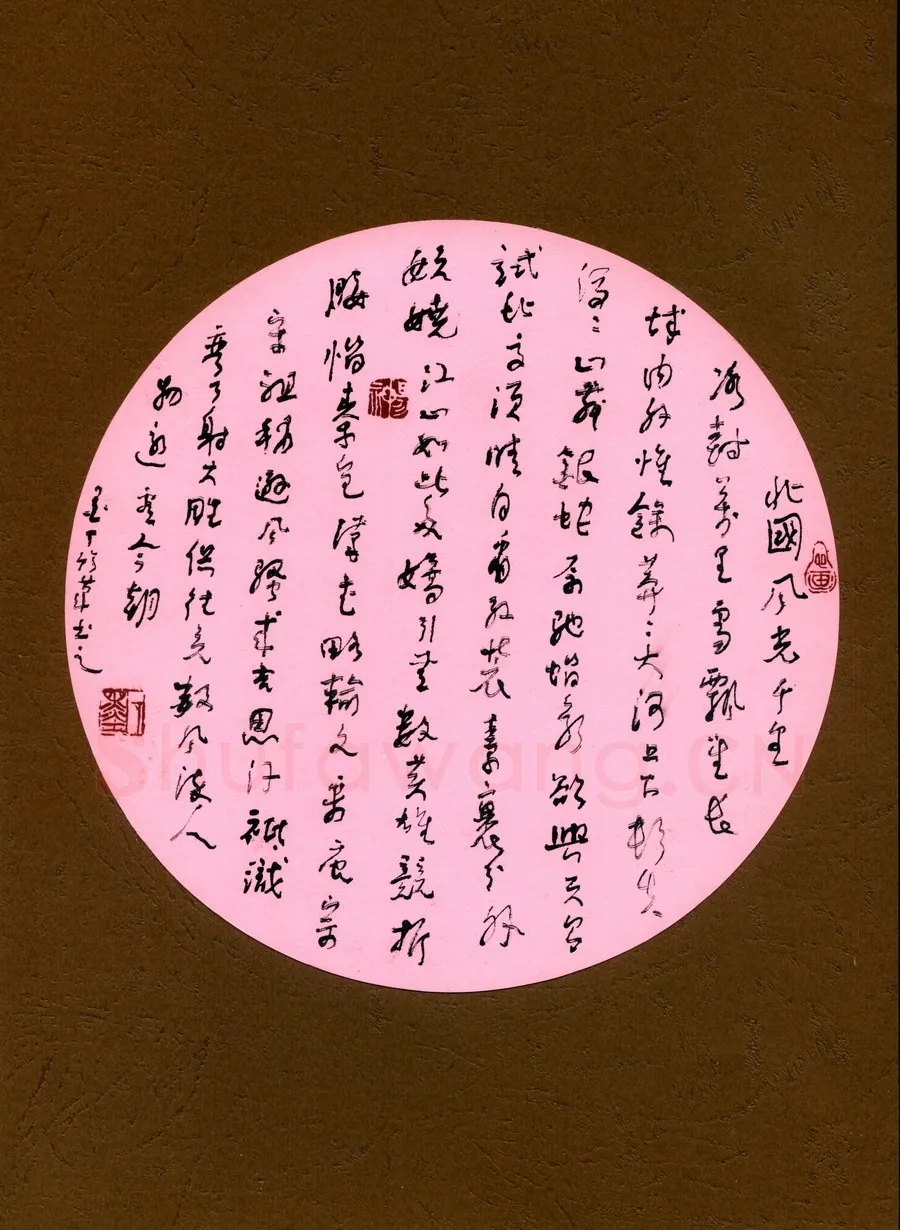 北國风光千里
冰封萬里雪飄望长
城内外惟餘莽〻大河上下頓失
滔〻山舞銀蛇原馳蜡象欲與天公
試比高須晴日看紅装素裹分外
妖嬈江山如此多嬌引無數英雄競折
腰惜秦皇漢武略輸文采唐宗
宋祖稍遜风騷成吉思汗祇識
彎弓射大雕俱往矣數风流人
物還看今朝
墨丁书之
Shufawang.CN